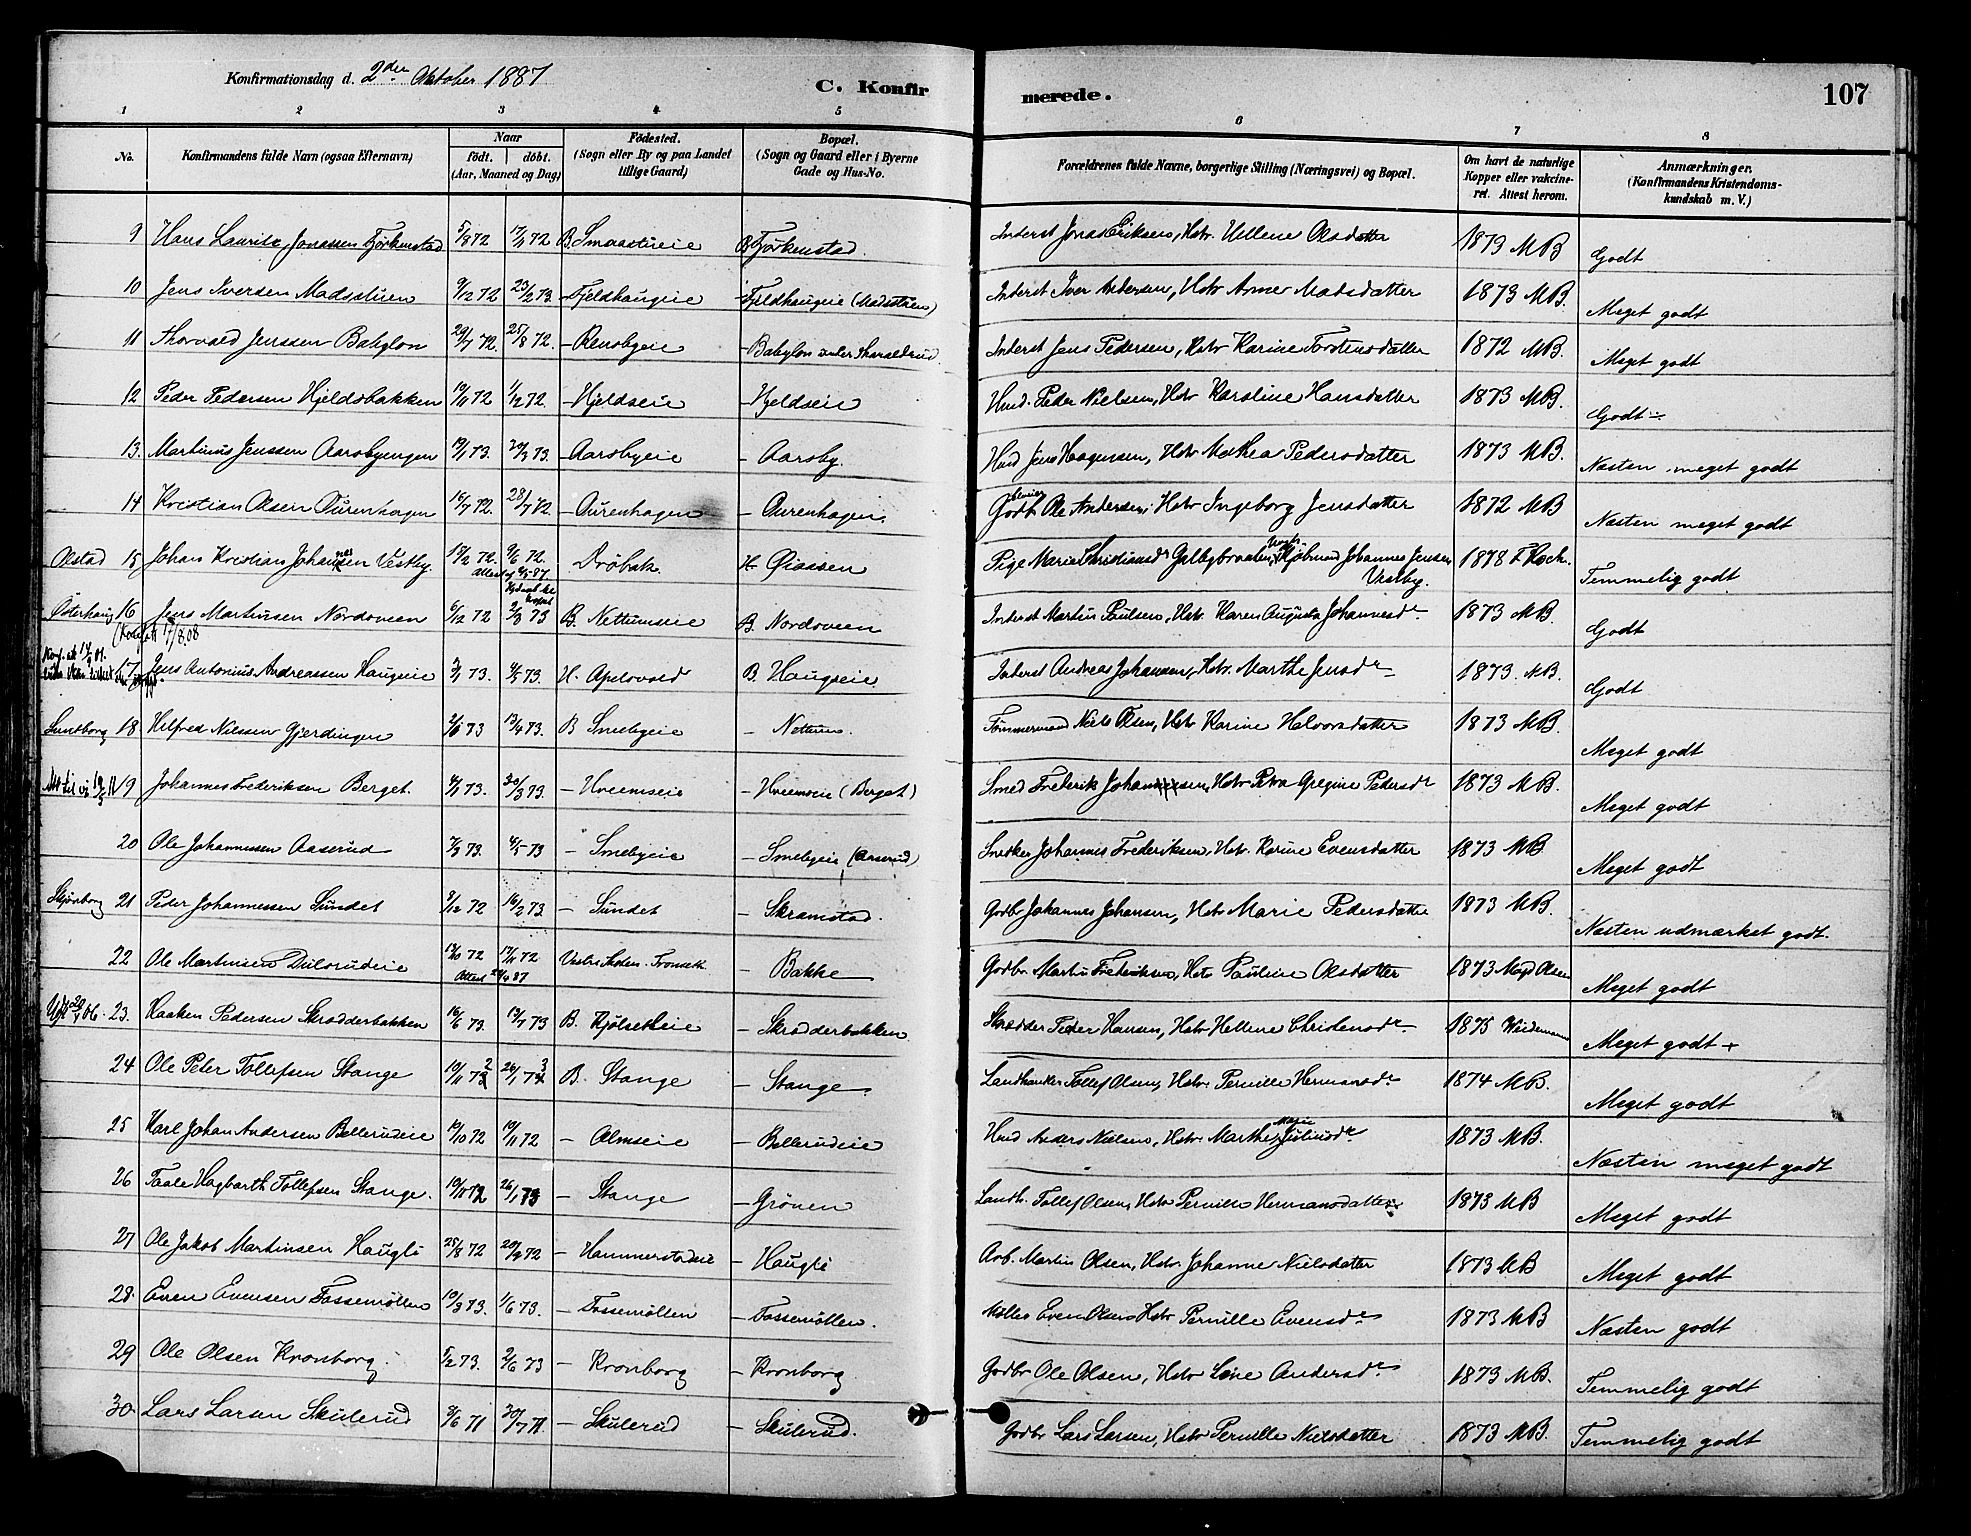 Konfirmationsdag d. 2den Oktober 1887
C. Konfirmerede.
107
1 2 3 4 5 6 7 8
No.
Konfirmandens fulde Navn (ogsaa Efternavn)
Naar
født. døbt.
(Aar, Maaned og Dag)
Fødested.
(Sogn eller By og paa Landet
tillige Gaard)
Bopæl.
(Sogn og Gaard eller i Byerne
Gade og Hus-No.
Forældrenes fulde Navne, borgerlige Stilling (Næringsvei) og Bopæl.
Om havt de naturlige
Kopper eller vakcine-
ret. Attest herom.
Anmærkninger.
(Konfirmandens Kristendoms-
kundskab m. V.)
9 Hans Lauritz Jonassen Fjørkenstad 5/9 72 17/11 72 B. Smaastueie B. Fjørkenstad. Inderst Jonas Eriksen, Hstr. Hellene Olsdatter 1873 MB Godt
10 Jens Iversen Madsstuen 9/12 72 23/2 73. - Fjeldhaugeie - Fjeldhaugeie (Madsstuen) Inderst Iver Andersen, Hstr Anne Madsdatter 1873 MB. Meget godt
11 Thorvald Jenssen Babylon 29/7 72. 25/8 72. - Renobyeie - Babylon under Thoraldrud Inderst Jens Pedersen, Hstr Karine Torstensdatter 1872 MB. Meget godt
12 Peder Pedersen Hjeldsbakken 19/11 72 1/12 72. - Hjeldseie - Hjeldseie Hmd. Peder Nielsen, Hstr Karoline Hansdatter 1873 MB. Godt ÷
13. Martinius Jenssen Aarsbyengen 19/1 73. 30/3 73. - Aarsbyeie - Aarsby. Hmd Jens Haagensen, Hstr Mathea Pedersdatter 1873 MB. Næsten meget godt
14 Kristian Olsen Øurenhagen 16/7 72. 28/7 72 - Øurenhagen - Øurenhagen. Godbr Ole Andersen, Hstr Ingeborg Jensdatter 1872 MB Næsten meget godt
Olstad 15 Johan Kristian Johannessen Vestby. 15/2 72. 9/6 72. Drøbak H. Qiassen Pige Marie Christiansdr Galbybraaten, Kjøbmand Johannes Jensen Vestby. 1878 F. Koch. Temmelig godt
Østerhaug 16 Jens Martinsen Nordsveen 6/12 72 2/3 73 B. Nettumseie B. Nordsveen Inderst Martin Paulsen, Hstr. Karen Augusta Johannesdr 1873 MB. Godt
17 Jens Antonius Andreassen Haugeie 2/1 73. 4/5 73. H. Apelsvold B. Haugseie Inderst Andreas Johansen, Hstr. Marthe Jensdr 1873. MB. Godt
Sundborg 18 Hilfred Nilssen Gjerdingen 2/6 73 13/4 73. B Smebyeie - Nettum. Tømmermand Niels Olsen, Hstr Karine Halvorsdatter 1873 MB. Meget godt
19 Johannes Frederiksen Berget. 4/1 73. 30/3 73. - Hveemseie - Hveemseie (Berget) Smed Frederik Johannessen, Hstr. Petra Gregine Pedersdr 1873 MB. Meget godt
20 Ole Johannessen Aaserud 7/3 73. 4/5 73 - Smebyeie - Smebyeie (Aaserud) Snedker Johannes Frederiksen, Hstr. Karine Evensdatter 1873 MB. Meget godt
Skjønborg 21 Peder Johannessen Sundet 8/12 72 16/2 73. - Sundet - Skramstad. Godbr Johannes Johansen, Hstr Marie Pedersdatter 1873 MB. Næsten udmærket godt.
22 Ole Martinsen Dulsrudeie 13/10 72 17/11 72 - Bakke Godbr. Martin Frederiksen, Hstr Pauline Olsdatter 1873 Magd Olsen Meget godt
Attest
23. Haaken Pedersen Skrædderbakken 16/6 73. 13/7 73 B. Kjølsetheie - Skrædderbakken Skrædder Peder Hansen, Hstr Hellene Christensdr 1875 Weidemann Meget godt +
24 Ole Peter Tollefsen Stange 19/11 72 26/1 73 B. Stange - Stange. Landhandler Tollef Olsen, Hstr. Pernille Hermansdr 1874 MB. Meget godt
25 Karl Johan Andersen Bellerudeie 19/10 72 19/11 72 - Olmseie - Bellerudeie Hmd Anders Nielsen, Hstr. Marthe Marie Juliusdr 1873 MB. Næsten meget godt
26 Taale Hagbarth Tollefsen Stange. 19/11 72 26/1 73 - Stange - Grønen Landh. Tollef Olsen, Hstr Pernille Hermansdatter 1873 MB Meget godt
27 Ole Jakob Martinsen Haugli 25/8 72 29/9 72 - Hammerstadeie - Haugli Arb. Martin Olsen, Hstr. Johanne Nielsdatter 1873 MB Meget godt
28. Even Evensen Fossemøllen 19/3 73. 1/6 73. - Fossemøllen - Fossemøllen. Møller Even Olsen Hstr Pernille Evensdr 1873 MB Næsten godt
29 Ole Olsen Kronborg. 5/2 73. 2/6 73 - Kronborg - Kronborg. Godbr Ole Olsen, Hstr Line Andersdr 1873 MB. Temmelig godt
30. Lars Larsen Skulerud 3/6 71 30/7 71. - Skulerud - Skulerud. Godbr Lars Larsen, Hstr Pernille Nielsdatter 1873 MB. Temmelig godt